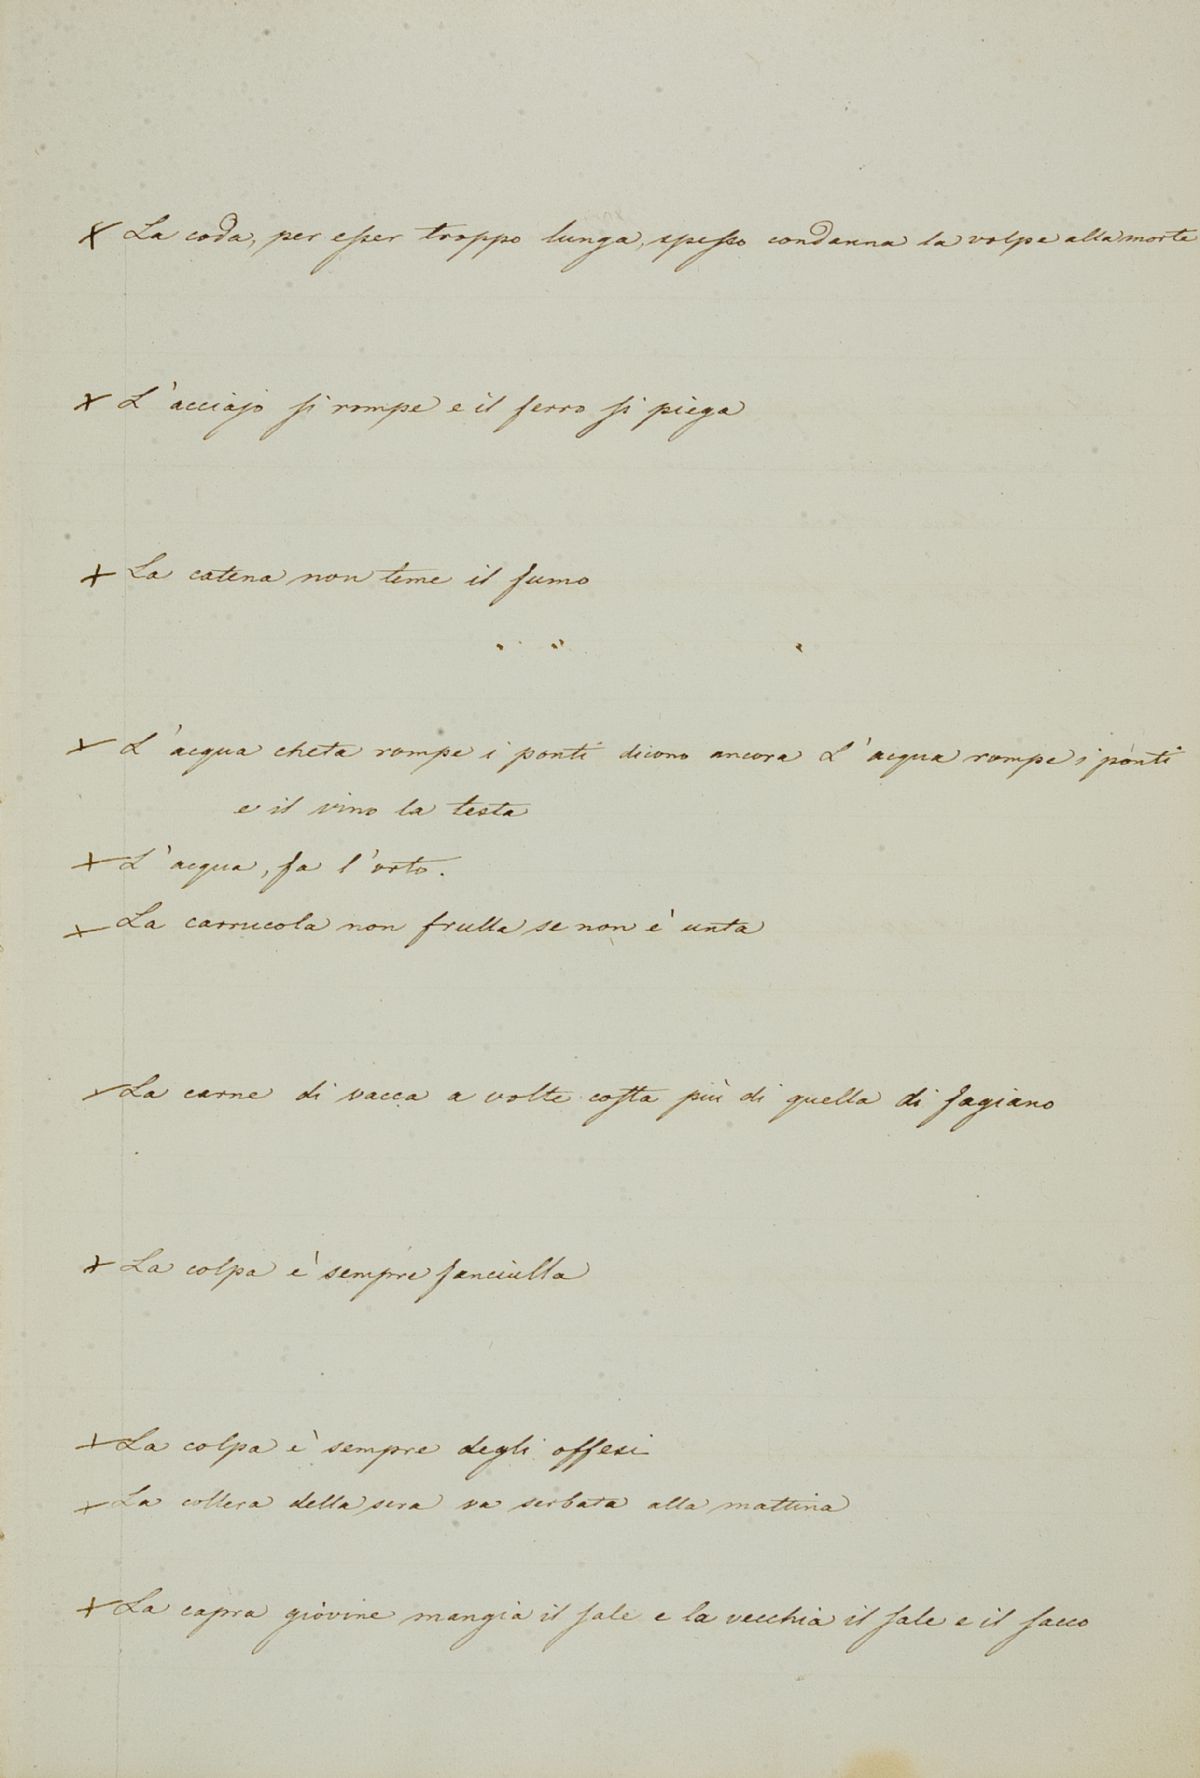 × La coda, per esser troppo lunga, spesso condanna la volpe alla morte
× L'acciajo si rompe e il ferro si piega
× La catena non teme il fumo
× L'acqua cheta rompe i ponti dicono ancora L'acqua rompe i ponti
e il vino la testa
× L'acqua, fa l'orto.
× La carrucola non frulla se non è unta
× La carne di vacca a volte costa più di quella di fagiano
× La colpa è sempre fanciulla
× La colpa è sempre degli offesi
× La collera della sera va serbata alla mattina
× La capra giovine mangia il sale e la vecchia il sale e il sacco